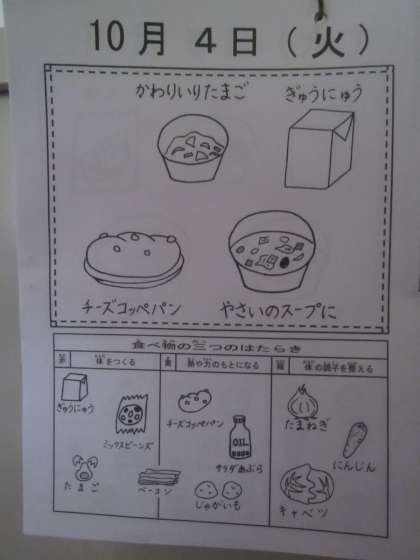 10月4日(火)
かわりいりたまご ぎゅうにゅう
チーズコッペパン やさいのスープに
食べ物の三つのはたらき
赤 体をつくる 黄 熱や力のもとになる 緑 体の調子を整える
ぎゅうにゅう
ミックスビーンズ
チーズコッペパン
OIL
たまねぎ
サラダあぶら
にんじん
たまご
ベーコン
じゃがいも
キャベツ